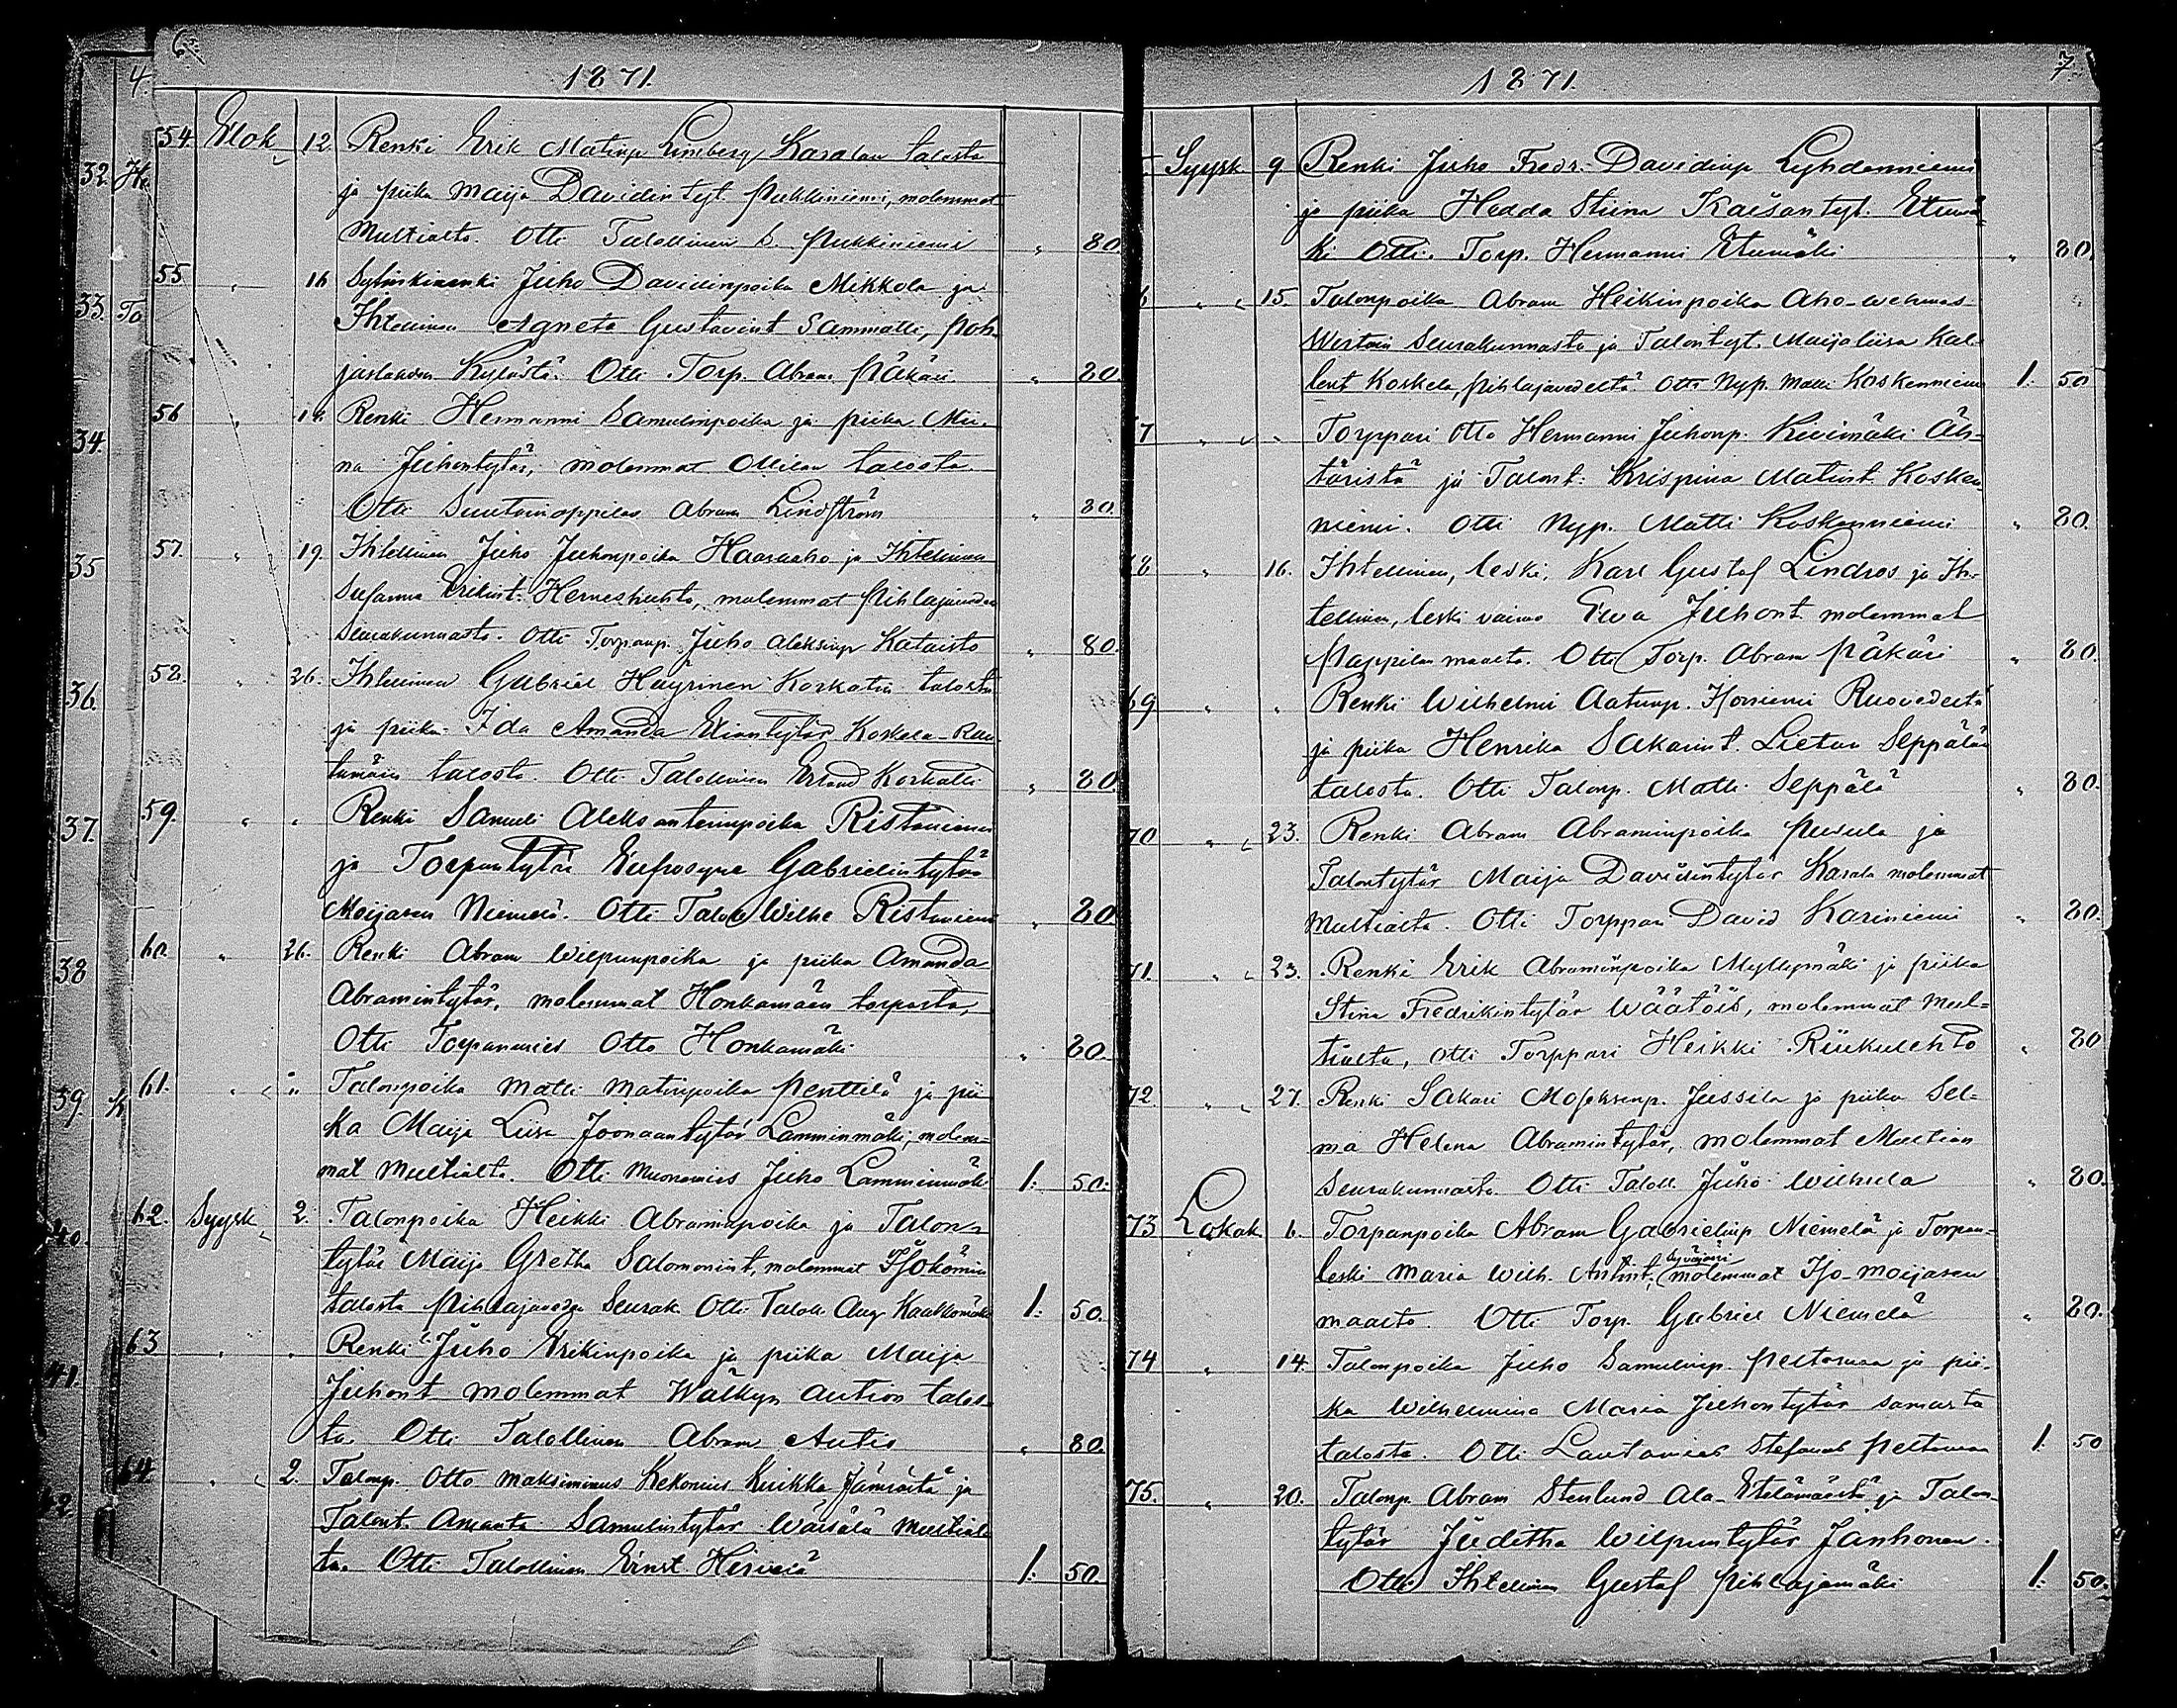 6.
1871.
54. Elok. 12. Renki Erik Matinp. Limberg Karalan talosta
ja piika Maija Davidintyt. Pukkiniemi, molemmat
Multialta. Otti Talollinen S. Pukkiniemi " 80.
55 " 16 Juho Davidinpoika Mikkola ja
Ihtellinen Agneta Gustavint Sammatti, Poh-
jaslahden Kylästä. Otti Torp. Abram Päkäri " 80.
56 " Renki Hermanni Samulinpoika ja piika Mii-
na Juhontytär, molemmat Ollilan talosta
Otti Abram Lindström " 80.
57. " 19. Ihtellinen Juho Juhonpoika Haaraaho ja Ihtellinen
Susanna Erikint. molemmat Pihlajaveden
Seurakunnasta. Otti Torpanp. Juho Aleksinp Kataisto " 80.
58. " 26. Ihtellinen Gabriel Häyrinen Korkatin talosta
ja piika Ida Amanda Eliantytär Koskela-Rau-
tamäen talosta. Otti Talollinen Erland Korkatti " 80.
59. " " Renki Samuli Aleksanterinpoika Ristaniemi
ja Torpantytär Eufrosyne Gabrielintytär
Moijasen Niemelä. Otti Talol. Wilhe Ristaniemi " 80
60. " 26. Renki Abram Wilpunpoika ja piika Amanda
Abramintytär, molemmat Honkamäen torpasta,
Otti Torpanmies Otto Honkamäki " 80.
61. " " Talonpoika Matti Matinpoika Penttilä ja pii
ka Maija Liisa Joonaantytär Lamminmäki, molem-
mat Multialta. Otti Muonamies Juho Lamminmäki 1. 50.
62. Syysk. 2. Talonpoika Heikki Abraminpoika ja Talon-
tytär Maija Gretha Salomonint, molemmat
talosta Pihlajaveden Seurak. Otti Talol. Aug 1. 50.
63 " " Renki Juho Erikinpoika ja piika Maija
Juhont molemmat Wälkyn Aution talos-
ta Otti Talollinen Abram Autio " 80.
64 " 2. Talonp. Otto Maksiminus Kekonius Kuikka Jämsästä ja
Talont. Amanta Samulintytär Wäisälä Multial-
ta. Otti Talollinen Ernst Hirvelä 1. 50.
7.
1871.
Syysk. 9. Renki Juho Fredr. Davidinp Lyhdenniemi
ja piika Hedda Stiina Kaisantyt. Etumä-
ki Otti. Torp. Hermanni Etumäki " 80.
6 " 15. Talonpoika Abram Heikinpoika Aho-wehmas
Wirtain Seurakunnasta ja Talontyt. Maijaliisa Kal-
lent Koskela, Pihlajavedeltä Otti Nyp. Matti Koskenniemi 1. 50
7 " " Torppari Otto Hermanni Juhonp. Kivimäki Äh-
täristä ja Talont. Krispina Matint. Kosken-
niemi. Otti Nyp. Matti Koskenniemi " 80.
8 " 16. Ihtellinen, leski, Karl Gustaf Lindros ja Ih-
tellinen, leski vaimo Ewa Juhont. molemmat
Pappilan maalta. Otti Torp. Abram Päkäri " 80.
69 " " Renki Wilhelmi Aatunp. Ruovedeltä
ja piika Henrika Sakarint. Lietun Seppälän
talosta. Otti Talonp. Matti Seppälä " 80.
70 " 23. Renki Abram Abraminpoika Pusula ja
Talontytär Maija Davidintytär Karala molemmat
Multialta. Otti Torppari David Kariniemi " 80.
71. " 23. Renki Erik Abraminpoika Myllymäki ja piika
Stina Fredrikintytär Wäätöis, molemmat Mul-
tialta, Otti Torppari Heikki Riikulehto " 80
72. " 27. Renki Sakari Moseksenp. Jussila ja piika Sel-
ma Helena Abramintytär, molemmat Multian
Seurakunnasta Otti Taloll. Juho Wilhula " 80.
73 Lokak. 6. Torpanpoika Abram Gabrielinp Niemelä ja Torpan-
leski Maria Wilh. Antint. Syväjärvi molemmat Iso-Moijasen
maalta. Otti Torp. Gabriel Niemelä " 80.
74 " 14. Talonpoika Juho Samulinp. Peltomaa ja pii-
ka Wilhelmina Maria Juhontytär samasta
talosta. Otti Lautamies Stefanus Peltomaa 1. 50
75. " 20. Talonp. Abram Stenlund Ala-Etelämäestä ja Talon-
tytär Juditha Wilpuntytär Janhonen.
Otti Ihtellinen Gustaf Pihlajamäki 1. 50.
4.
32. He
33. To
34.
35
36.
37.
38
39
40.
41.
42.